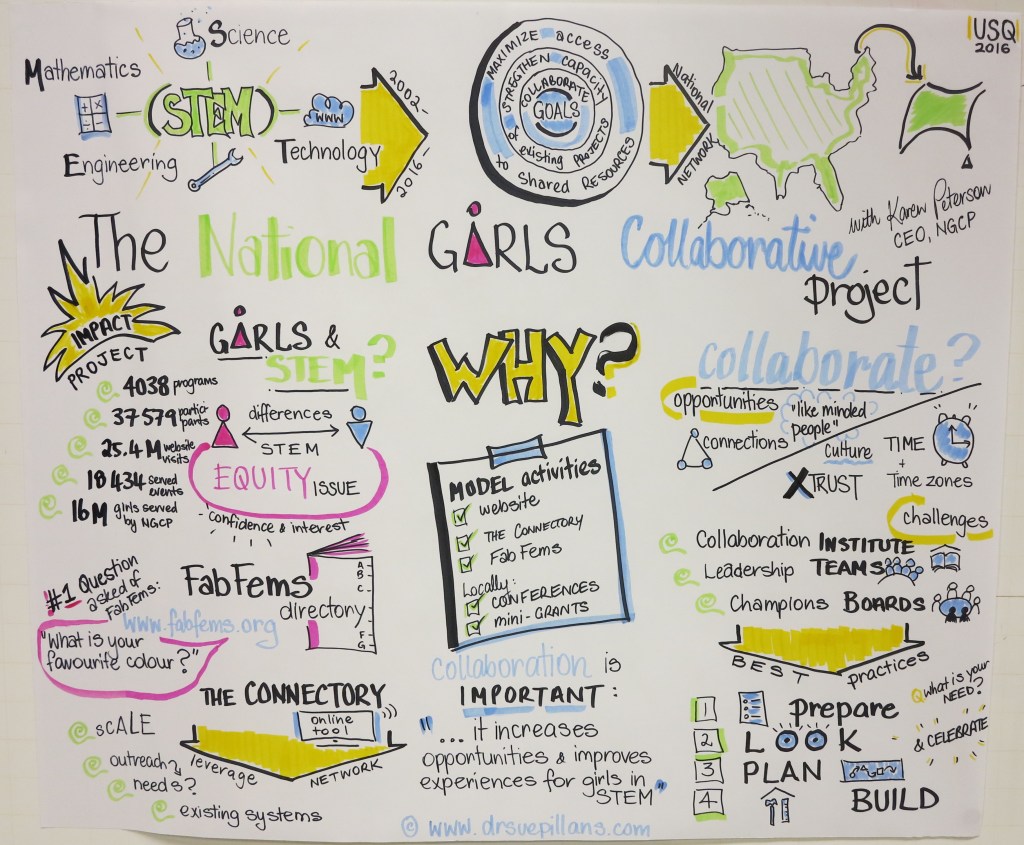 USQ
2016
Science
Mathematics
(STEM)
WWW
Engineering
Technology
2002-
2016-
MAXIMIZE access
to Shared RESOURCES
STREGTHEN CAPACITY
of existing PROJECTS
COLLABORATE
GOALS
National
NETWORK
with Karen Peterson
CEO, NGCP
The National GiRLS Collaborative
project
IMPACT
PROJECT
4038 programs
37579 partici-
pants
25.4M website
visits
18434 served
events
16M girls served
by NGCP
GiRLS &
STEM?
differences
STEM
EQUITY ISSUE
confidence & interest
WHY?
MODEL activities
website
THE CONNECTORY
Fab Fems
Locally:
CONFERENCES
mini-GRANTS
collaborate?
opportunities
"like minded
people"
connections
culture
TIME
+
Time zones
XTRUST
challenges
Collaboration INSTITUTE
Leadership TEAMS
Champions BOARDS
BEST practices
1 prepare
2 LOOK
3 PLAN
4 BUILD
Q what is your
NEED?
& CELEBRATE
#1 Question
asked of
FabFems:
"What is your
favourite colour?"
FabFems
directory
www.fabfems.org
A
B
C
F
G
THE CONNECTORY
online
tool
leverage NETWORK
SCALE
outreach
needs?
existing systems
collaboration is
IMPORTANT:
"... it increases
opportunities & improves
experiences for girls in
STEM"
© www.drsuepillans.com